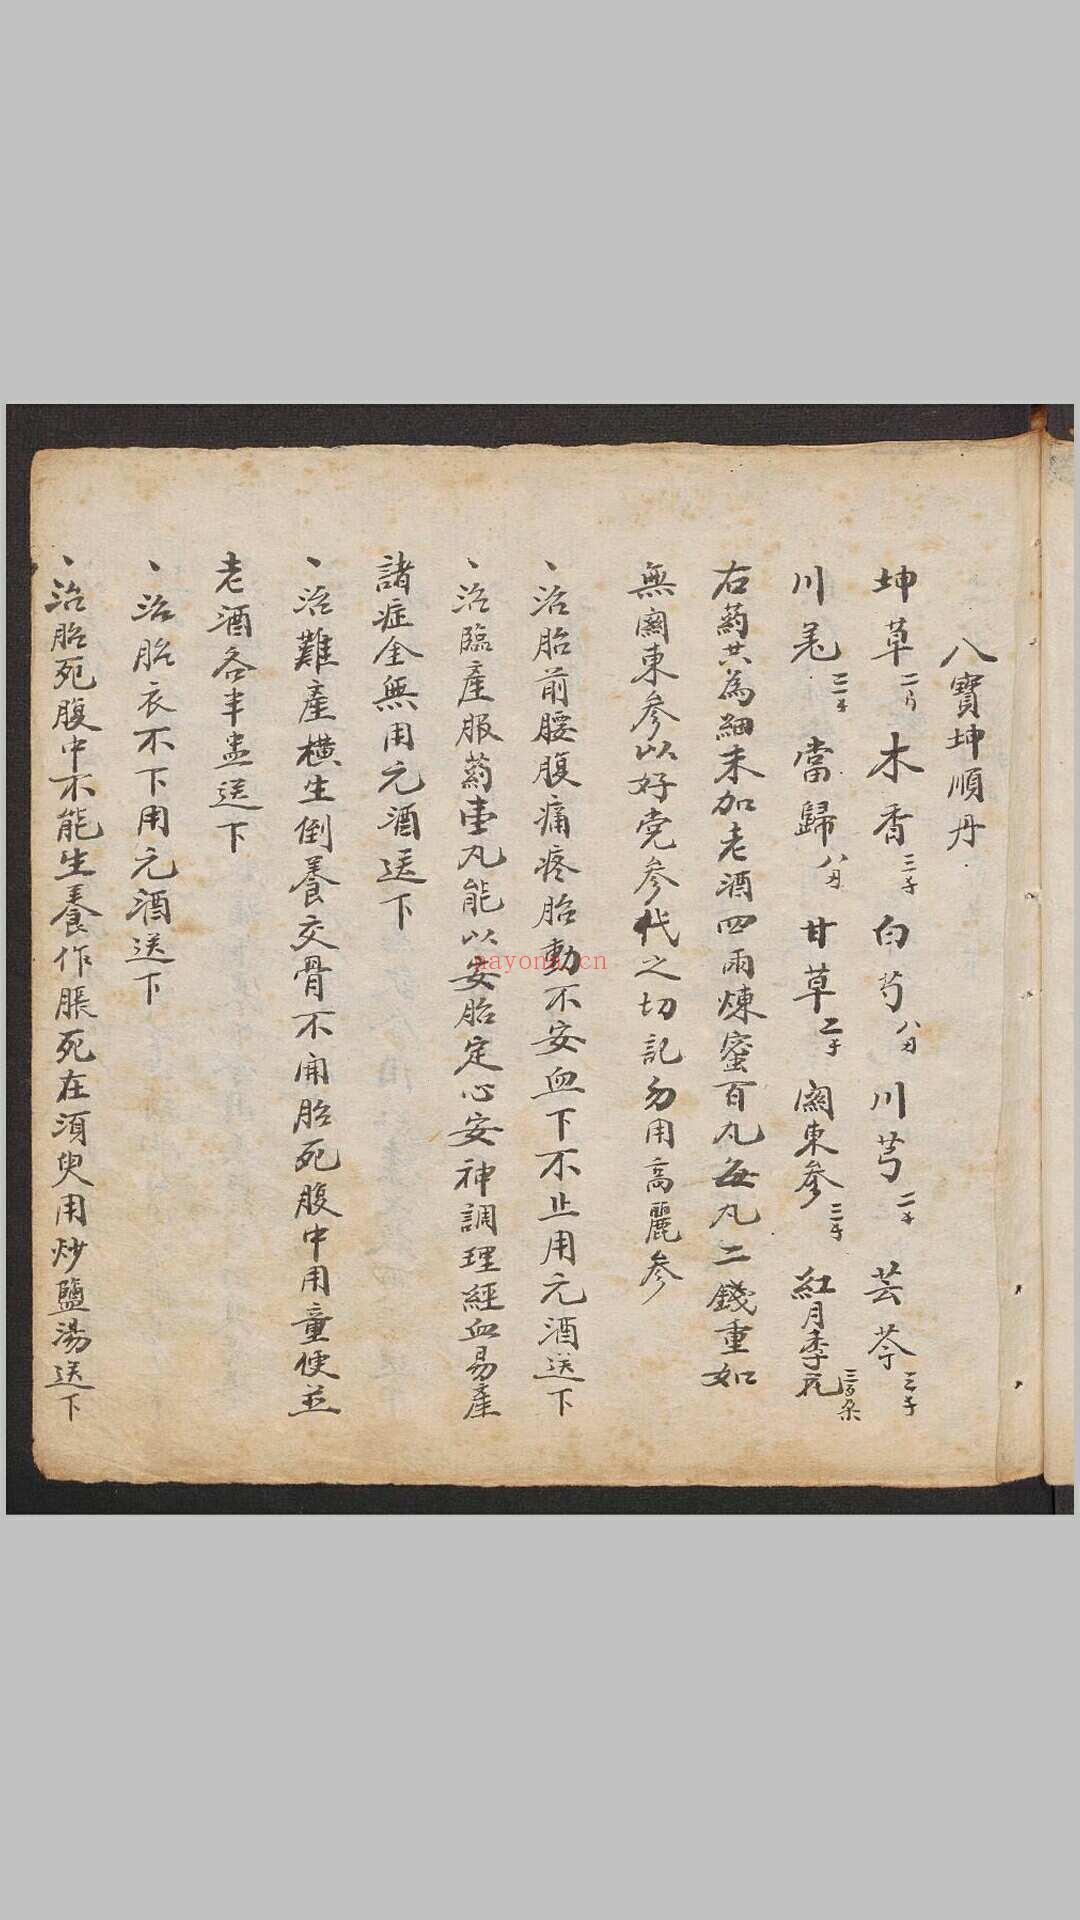 八寶坤順丹
坤草 二 木香 三 白芍 八 川芎 二 芸苓 三
川羌 三 當歸 八 甘草 二 関東參 三 紅月季花 三百朶
右药共為細末加老酒四兩煉蜜百丸每丸二錢重如
無関東参以好党参代之切記勿用高麗参
、治胎前腰腹痛疼胎動不安血下不止用元酒送下
、治臨產服药壷丸能以安胎定心安神調理經血易產
諸症全無用元酒送下
、治難產橫生倒養交骨不開胎死腹中用童便並
老酒各半盅送下
、治胎衣不下用元酒送下
、治胎死腹中不能生養作脹死在須臾用炒鹽湯送下
nayona.cn